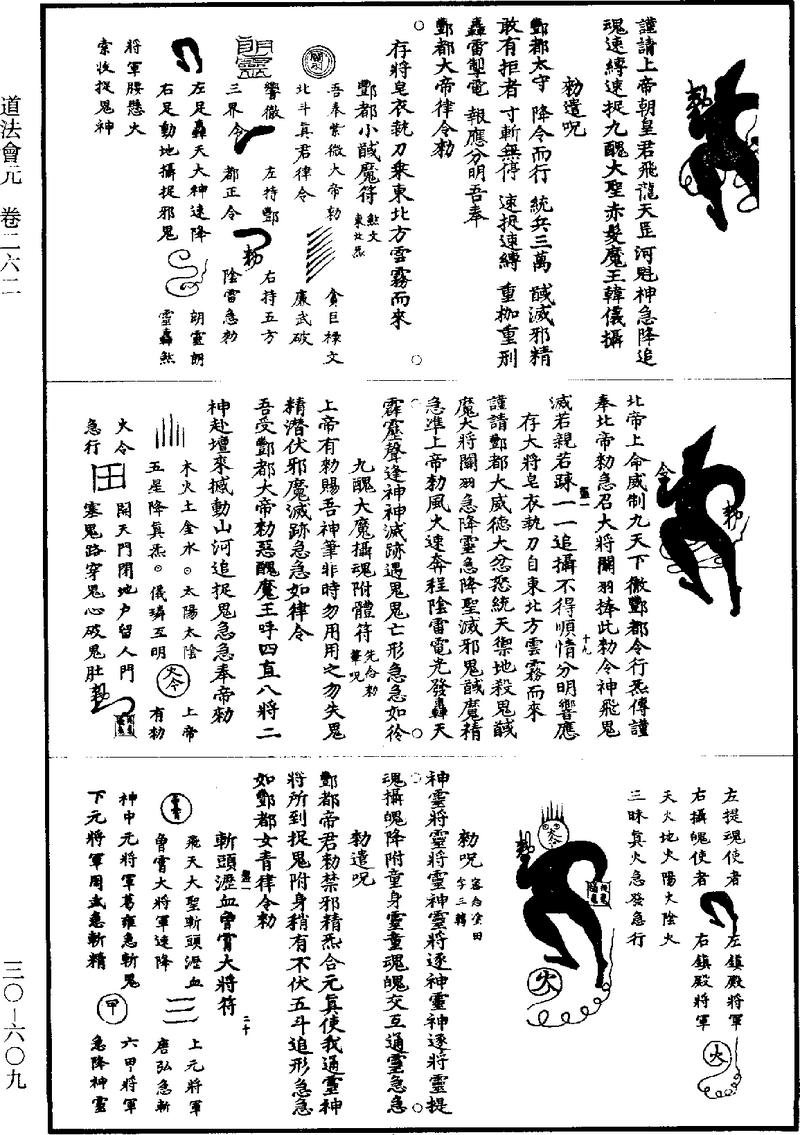 道法會元 卷二六二
謹請上帝朝皇君飛龍天臣河魁神急降追
魂速縛速捉九醜大聖赤髮魔王韓儀攝
勅遣呪
酆都太守 降令而行 統兵三萬 馘滅邪精
敢有拒者 寸斬無停 速捉速縛 重枷重刑
轟雷掣電 報應分明吾奉
酆都大帝律令勅
存將皂衣執刀乘東北方雲霧而來
酆都小馘魔符
吾奉紫微大帝勅 貪巨祿文
北斗真君律令 廉武破
響徹 左持酆 右持五方
三界令 都正令 陰雷急勅
左足轟天大神速降 朗靈朗
右足動地攝捉邪鬼 靈轟煞
將軍腰懸火
索收捉鬼神
北帝上命威制九天下徹酆都令行炁傳謹
奉北帝勅急召大將關羽捧此勅令神飛鬼
滅若親若踈一一追攝不得順情分明響應
存大將皂衣執刀自東北方雲霧而來
謹請酆都大威德大忿怒統天禦地殺鬼馘
魔大將關羽急降靈急降聖滅邪鬼馘魔精
急準上帝勅風火速奔程陰雷電光發轟天
霹靂聲逢神神滅跡遇鬼鬼亡形急急如律令
九醜大魔攝魂附體符
上帝有勅賜吾神筆非時勿用用之勿失鬼
精潛伏邪魔滅跡急急如律令
吾受酆都大帝勅惡醜魔王呼四直八將二
神赴壇來撼動山河追捉鬼急急奉帝勅
木火土金水。太陽太陰 上帝
五星降真炁。儀璘五明 有勅
火令 開天門閉地户留人門
急行 塞鬼路穿鬼心破鬼肚
左提魂使者 左鎮殿將軍
右攝魄使者 右鎮殿將軍
天火地火陽火陰火
三昧真火急發急行
勅呪
神靈將靈將靈神靈將逐神靈神逐將靈提
魂攝魄降附童身靈童魂魄交互通靈急急
勅遣呪
酆都帝君勅禁邪精炁合元真使我通靈神
將所到捉鬼附身稍有不伏五斗追形急急
如酆都女青律令勅
斬頭瀝血曾霄大將符
飛天大聖斬頭瀝血 上元將軍
曾霄大將軍速降 唐弘急斬
神中元將軍葛雍急斬鬼 六甲將軍
下元將軍周武急斬精 急降神靈
三〇—六〇九